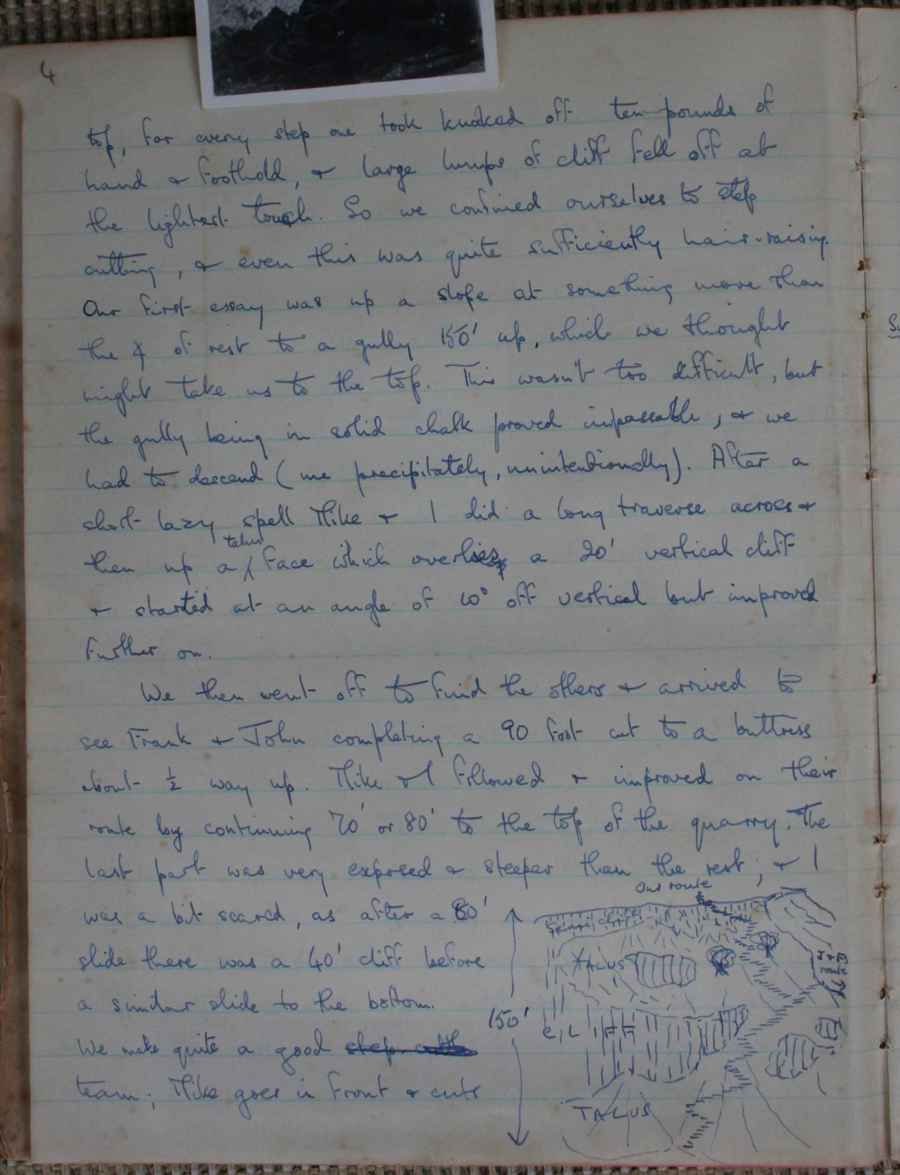 4
top, for every step one took knocked off ten pounds of
hand & foothold, & large lumps of cliff fell off at
the lightest touch. So we confined ourselves to step
cutting, & even this was quite sufficiently hair-raising.
Our first essay was up a slope at something more than
the ∡ of rest to a gully 150' up, which we thought
might take us to the top. This wasn't too difficult, but
the gully being in solid chalk proved impassable, & we
had to descend (me precipitately, unintentionally). After a
short lazy spell Mike & I did a long traverse across &
then up a talus face which overlies a 20' vertical cliff
& started at an angle of 10° off vertical but improved
further on.
We then went off to find the others & arrived to
see Frank & John completing a 90 foot cut to a buttress
about ½ way up. Mike & I followed & improved on their
route by continuing 70' or 80' to the top of the quarry. The
last part was very exposed & steeper than the rest; & I
was a bit scared, as after a 80'
slide there was a 40' cliff before
a similar slide to the bottom.
We make quite a good step cutt
team; Mike goes in front & cuts
Our route
TALUS
150'
CLIFF
TALUS